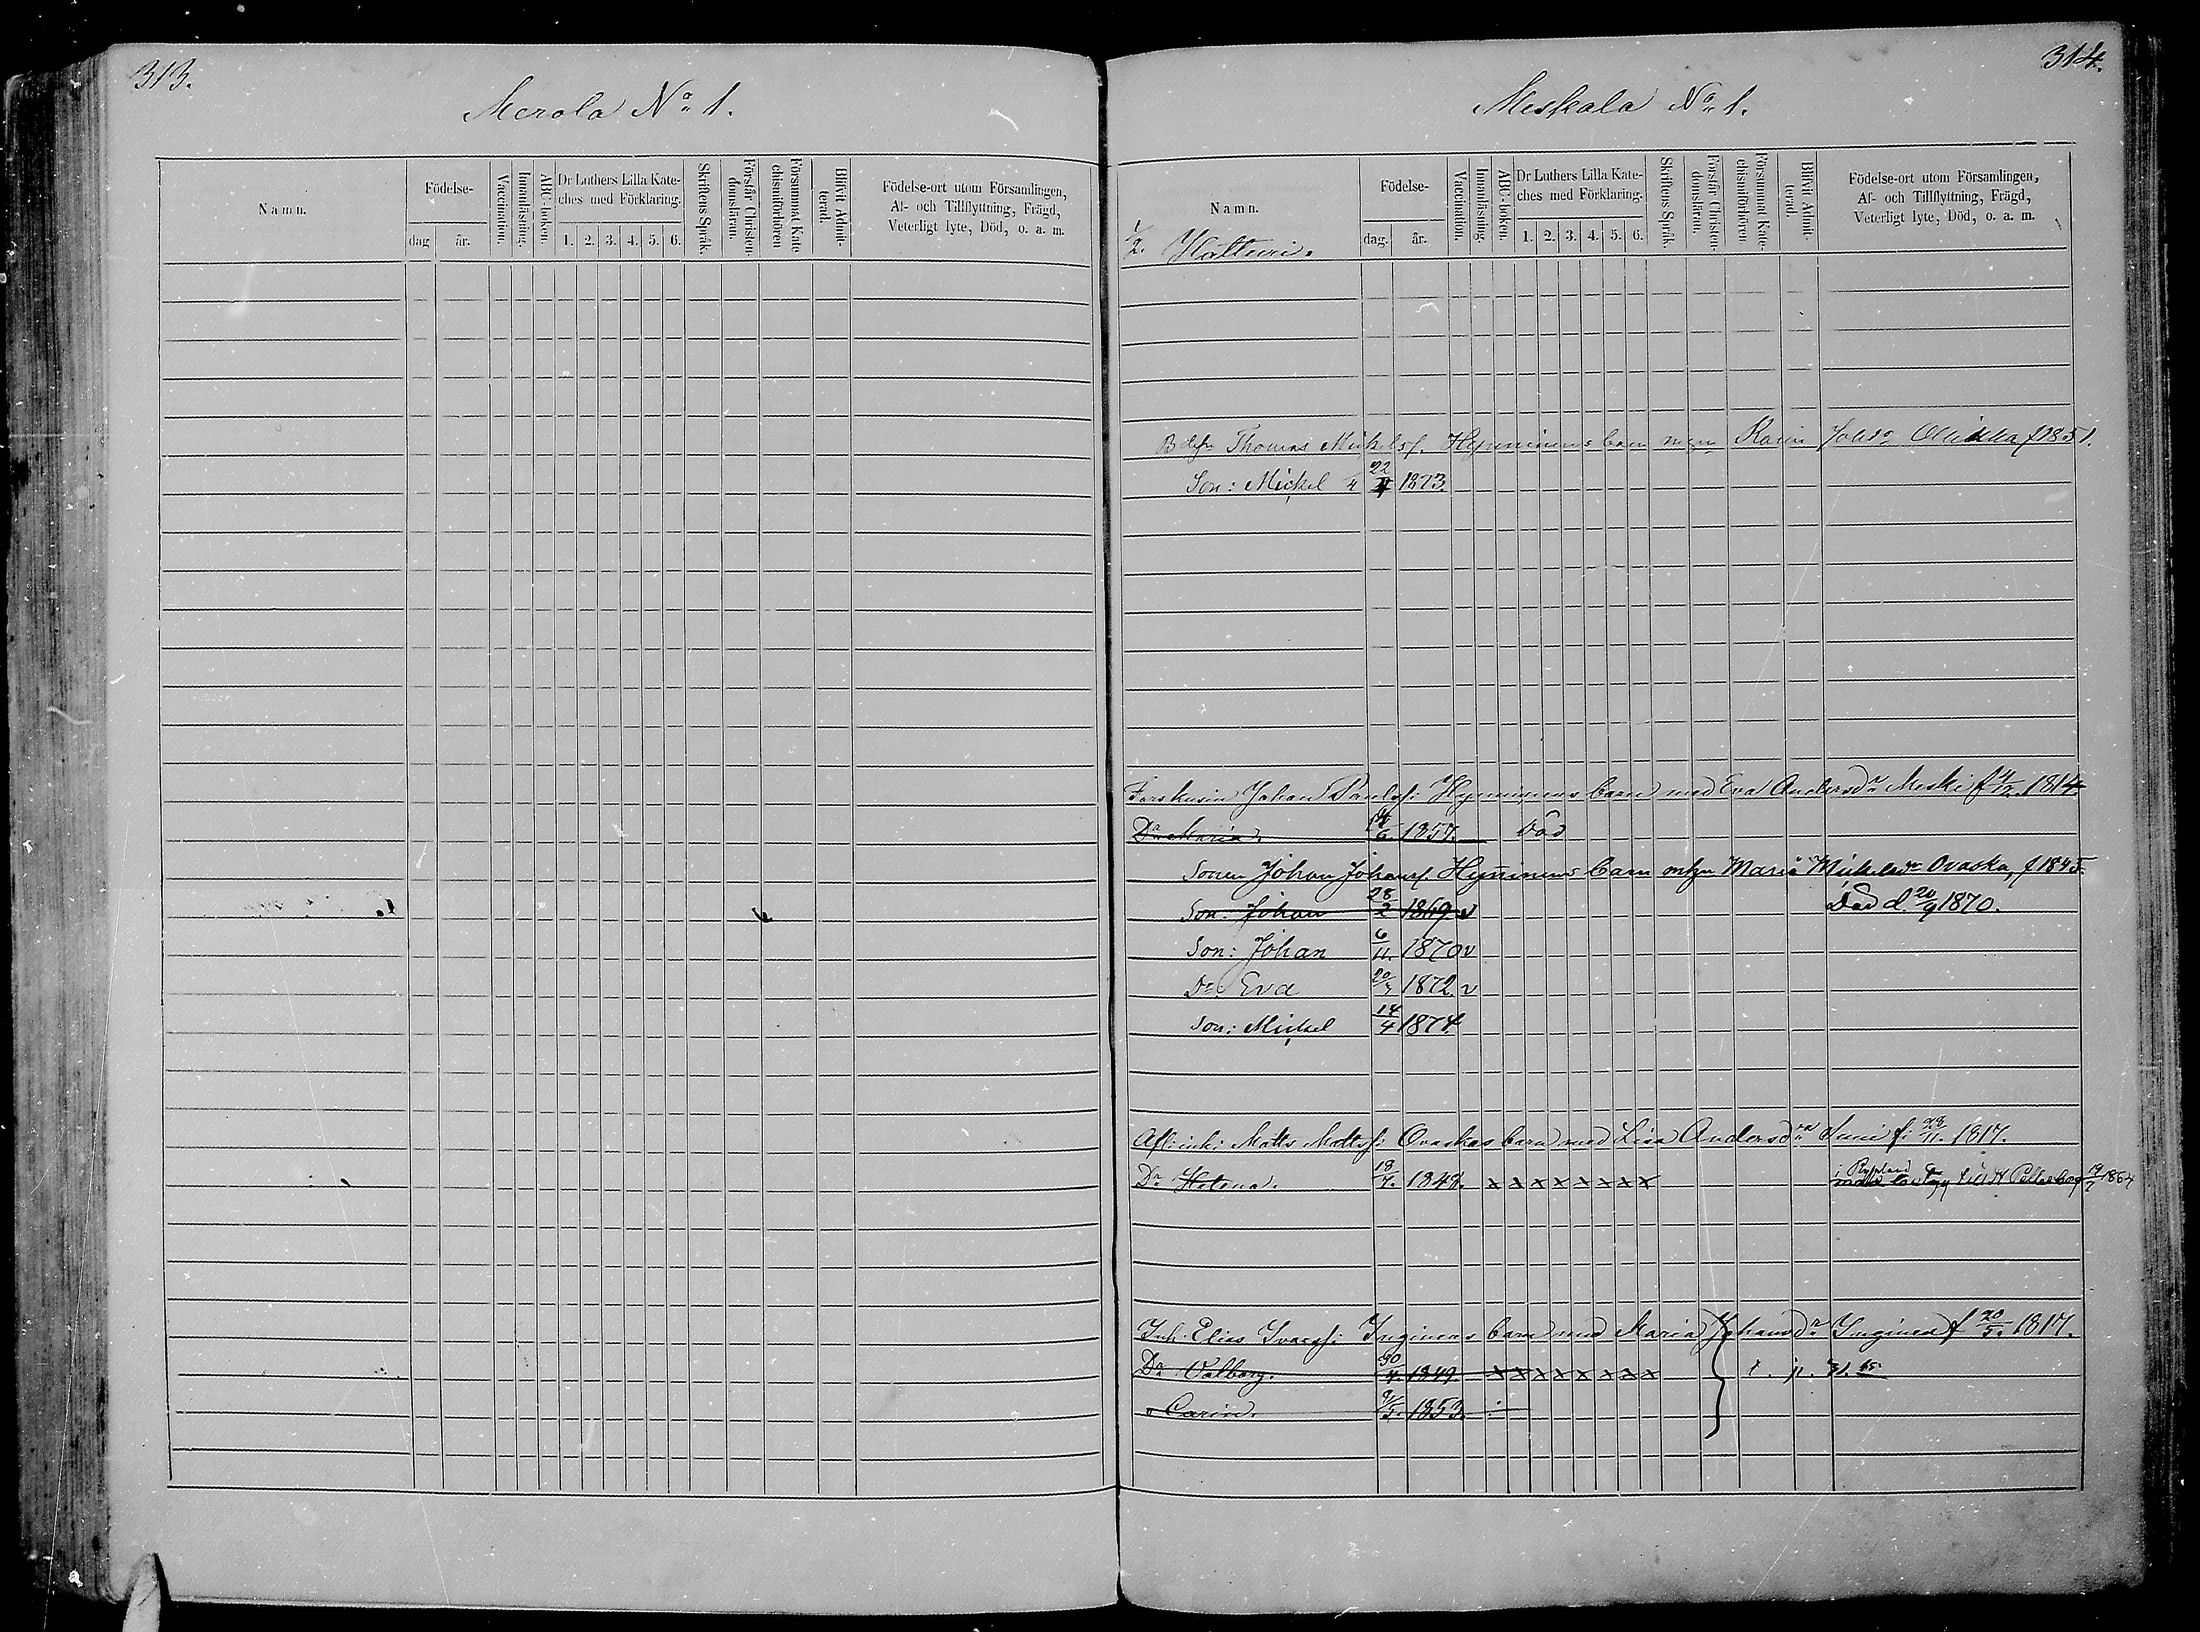 313.
Merola No 1.
Namn.
Födelse-
dag
år.
Vaccination.
Innanläsning.
ABC-boken.
Dr Luthers Lilla Kate-
ches med Förklaring.
1. 2. 3. 4. 5. 6.
Skriftens Språk.
Förstår Christen-
domsläran.
Försummat Kate
chismiförhören
Blifvit Admit-
terad.
Födelse-ort utom Församlingen,
Af- och Tillflyttning, Frägd,
Veterligt lyte, Död, o. a. m.
314.
Meskala No 1.
Namn.
1/2. Hälturi.
Födelse-
dag.
år.
Vaccination.
Innanläsning.
ABC-boken.
Dr Luthers Lilla Kate-
ches med Förklaring.
1. 2. 3. 4. 5. 6.
Skriftens Språk.
Förstår Christen-
domsläran.
Försummat Kate-
chismiförhören
Blifvit Admit-
terad.
Födelse-ort utom Församlingen,
Af- och Tillflyttning, Frägd,
Veterligt lyte, Död, o. a. m.
Thomas Mickelsf. Hynninens barn Karin f 1851.
Son: Mickel 22 1873
Johan Paulsf: Hynninens barn med Eva Andersdr Meski f 4/12. 1814.
Dr Maria. 14/6. 1857. Död
Sonen Johan Johansf. Hynninens barn Maria Mickelsdr Ovaska, f 1845
Son: Johan 28/2 1869 v Död d. 24/9 1870.
Son: Johan 6/11. 1870 v
Dr Eva 20/7 1872. v
Son: Mickel 14/4 1874
Matts Mattsf: Ovaskas barn med Lisa Andersdr Suni f: 28/11. 1817.
Dr Helena. 18/7. 1848. x x x x x x x x
Inh. Elias Ivarsf: Inginens barn med Maria Johansdr Inginen f 20/5. 1817.
Dr Valborg. 30/4. 1849 x x x x x x x x
" Carin. 9/5. 1853.